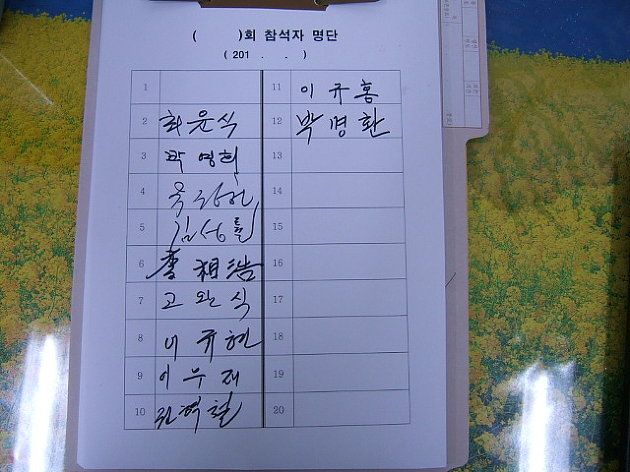 ( )회 참석자 명단
(201 . . )
1
2 최윤식
3 박영희
4
5 김성률
6 李相浩
7 고완식
8 이규현
9 이우재
10
11 이규홍
12 박명환
13
14
15
16
17
18
19
20